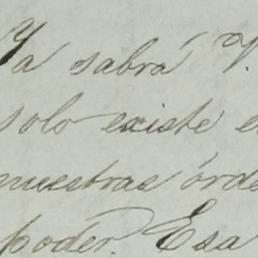 Ya sabrá V.
solo existe e
nuestras órde
poder. Esa